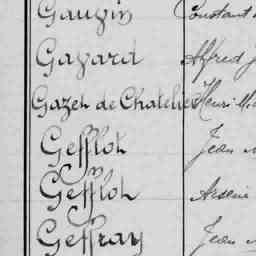 Gauvin Constant
Gavard Alfred J
Gazet de Chatelier Henri M
Gefflot Jean
Gefflot Arsène
Geffray Jean